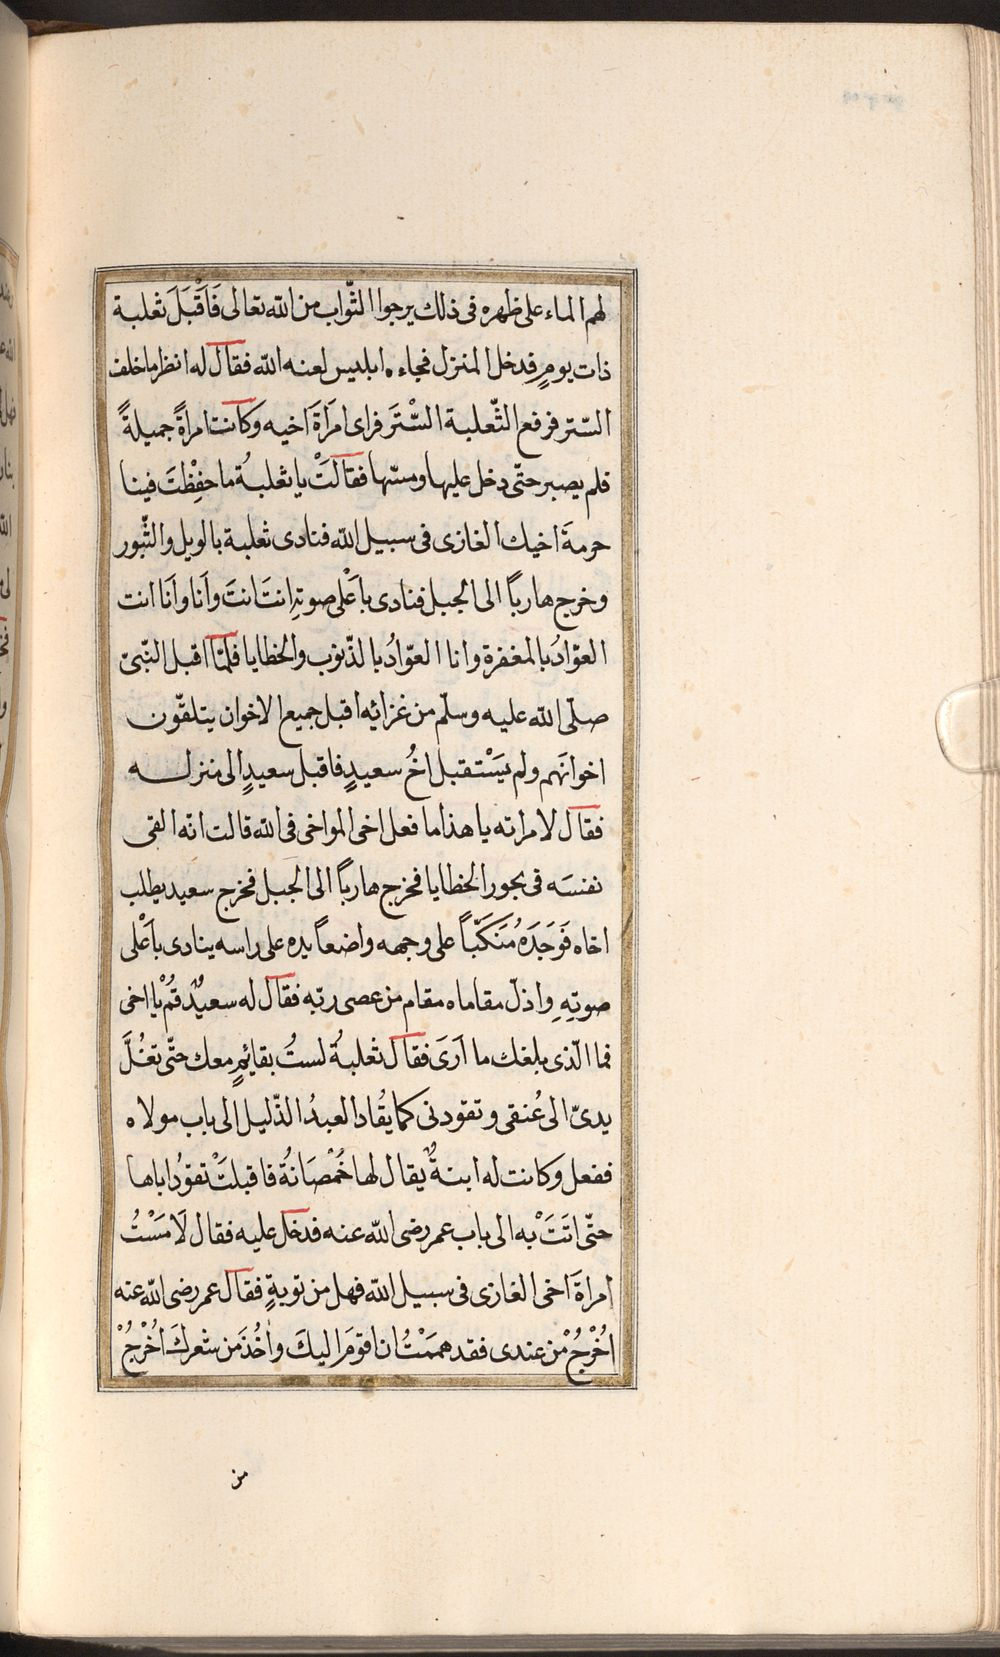 لهم الماء على ظهره فى ذلك يرجوا الثّواب من اللّه تعالى فَاَقْبَلَ ثعلبة
ذات يومٍ فدخل المنزل فجاءه ابليس لعنه اللّه فقال له انظر ما خلف
السّتر فرفع الثّعلبة السّتَر فراى امرَاَةَ اخيه وكانت امراةً جميلةً
فلم يصبر حتّى دخل عليها ومسّها فقالَتْ يا ثعلبةُ ما حفِظْتَ فينا
حرمةَ اخيك الغازى فى سبيل اللّه فنادى ثعلبة بالويل والثّبور
وخرج هارباً الى الجبل فنادى بِاَعْلى صوتِهِ انتَ انتَ وَاَنا وَاَنَا انت
العوّادُ بالمغفرة وانا العوّادُ بالذّنوب والخطايا فلمّا اقبل النّبىّ
صلّى اللّه عليه وسلّم من غزائِه اقبل جميع الاخوان يتلقّون
اخوانَهم ولم يَسْتقبل اخُ سعيدٍ فاقبل سعيدٍ الى منزله
فقال لامراته يا هذا ما فعل اخى المواخى فى اللّه قالت انّه القى
نفسَه فى بحور الخطايا فخرج هارباً الى الجبل فخرج سعيد يطلب
اخاه فَوَجَدَهُ مُنَكَبّاً على وجهه واضعاً يده على راسه ينادى بِاَعْلى
صوتِهِ واذلّ مقاماه مقام من عصى ربّه فقال له سعيدٌ قُمْ يا اخى
فما الّذى بلغك ما اَرىَ فقال ثعلبةُ لستُ بقائمٍ معك حتّى تغُلَّ
يدىّ الى عُنقى وتقودنى كما يُقاد العبدُ الذّليل الى باب مولاه
ففعل وكانت له ابنةٌ يقال لها خُمْصَانَةُ فاقبلتْ تقوُد اباها
حتّى اتَتَ به الى باب عمر رضى اللّه عنه فدخل عليه فقال لَامَسْتُ
امراةَ اخى الغازى فى سبيل اللّه فهل من توبةٍ فقال عمر رضى اللّه عنه
اُخْرُجْ من عندى فقد هممْتُ ان اقومَ اليكَ واٰخُذَ من شعرك اُخْرُجْ
من